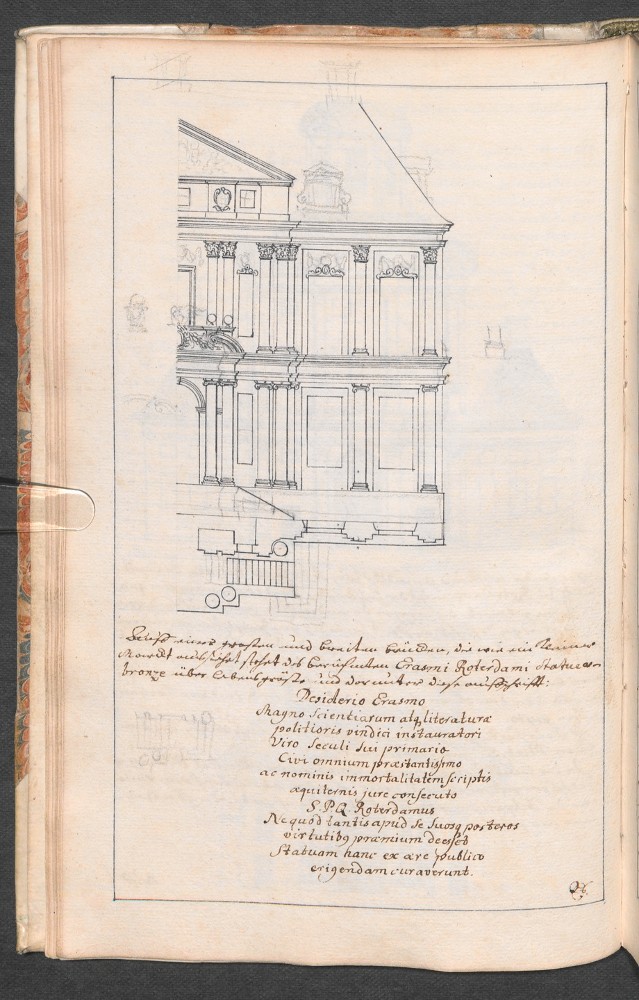 auf einer grosen und breiten brücken, die wie ein kleiner
Marckt aussiehet stehet des berühmten Erasmi Roterdami statue v.
bronze über Lebensgröse und darunter diese auffschrifft:
Desiderio Erasmo
Magno Scientiarum atq literaturæ
politioris vindici instauratori
Viro Seculi Sui primario
Civi omnium præstantissimo
ac nominis immortalitatem scriptis
æquiternis jure consecuto
S. P. Q. Roterdamus
Ne quod tantis apud se Suosq posteros
virtutibq præmium deesset
Statuam hanc ex ære publico
erigendam curaverunt.